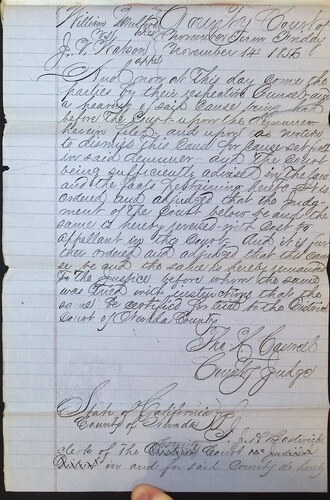 William County Court of
vs November Term Friday
J. V. Watson November 14 1856
appt
And now at this day comes the
parties by their respective Counsel and
a hearing of said Cause being had
before the Court upon the demurrer
herein filed and upon motion
to dismiss this Cause for cause set forth
in said demurrer and the Court
being sufficiently advised in the law
and the facts pertaining hereto it is
ordered and adjudged that the Judg-
ment of the Court below be and the
same is hereby reversed with Cost to
appellant in this Court And it is fur
ther ordered and adjudged that this Cause
be and the same is hereby remanded
to the Justice before whom the same
was tried with instructions that the
same be certified to the District
Court of Nevada County
County Judge
State of California
County of Nevada
clerk of the County Court
in and for said County do hereby